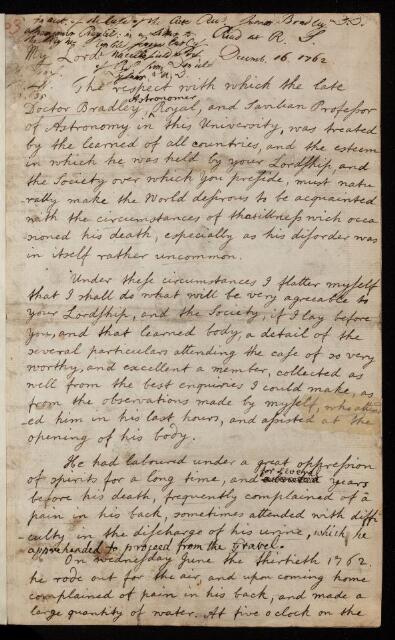 an acct. of the Case of the late Revd. James Bradley D.D.
Astronomer Royal in a letter to
Read at R. S.
My Lord
Decemb. 16. 1762
The respect with which the late
Astronomer
Doctor Bradley, Royal, and Savilian Professor
of Astronomy in this University, was treated
by the learned of all countries, and the esteem
in which he was held by your Lordship, and
the Society over which you preside, must natu
rally make the World desirous to be acquainted
with the circumstances of that illness wich occa
sioned his death, especially as his disorder was
in itself rather uncommon.
Under these circumstances I flatter myself
that I shall do what will be very agreeable to
your Lordship, and the Society, if I lay before
you, and that learned body, a detail of the
several particulars attending the case of so very
worthy, and excellent a member, collected as
well from the best enquiries I could make, as
from the observations made by myself, who attend
-ed him in his last hours, and assisted at the
opening of his body.
He had laboured under a great oppression
for several
of spirits for a long time, and years
before his death, frequently complained of a
pain in his back, sometimes attended with diffi
-culty in the discharge of his urine, which he
apprehended to proceed from the gravel.
On wednesday June the thirtieth 1762.
he rode out for the air, and upon coming home
complained of pain in his back, and made a
large quantity of water. At five o clock on the